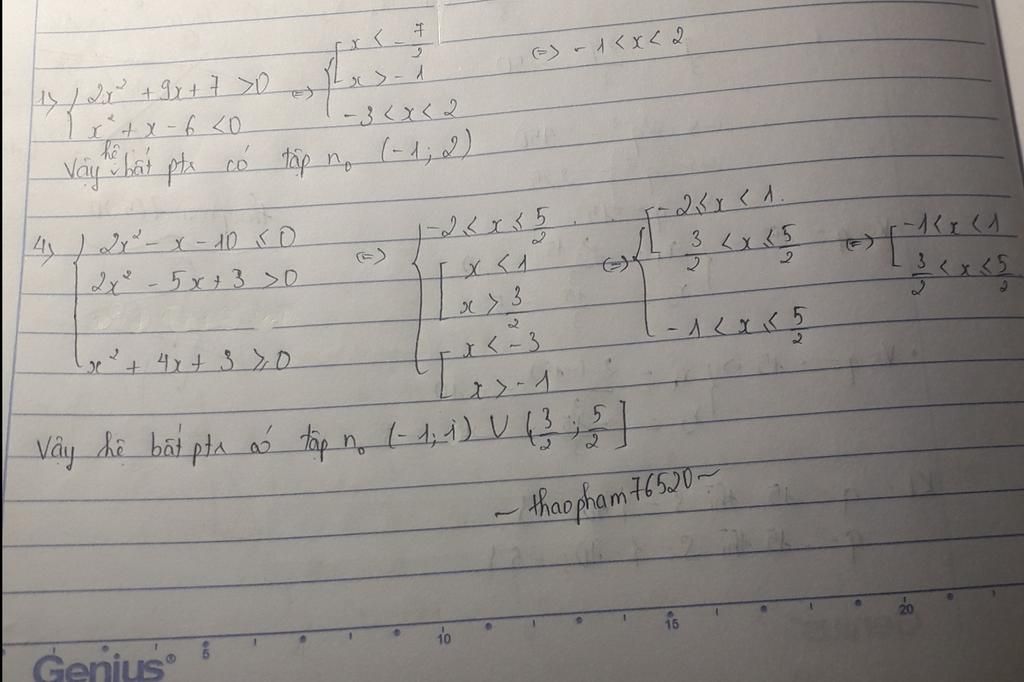 1) { 2x² + 9x + 7 > 0 ; x² + x - 6 < 0 <=> { [ x < -7/2 ; x > -1 ; -3 < x < 2 <=> -1 < x < 2
Vậy hệ bất ptr có tập n₀ (-1; 2)
4) { 2x² - x - 10 ≤ 0 ; 2x² - 5x + 3 > 0 ; x² + 4x + 3 ≥ 0 <=> { -2 ≤ x ≤ 5/2 ; [ x < 1 ; x > 3/2 ; [ x < -3 ; x > -1 <=> { [ -2 ≤ x < 1 ; 3/2 < x ≤ 5/2 ; -1 < x ≤ 5/2 <=> [ -1 < x < 1 ; 3/2 < x ≤ 5/2
Vậy hệ bất ptr có tập n₀ (-1; 1) ∪ (3/2; 5/2]
~ thaopham76520 ~
5 10 15 20
Genius®